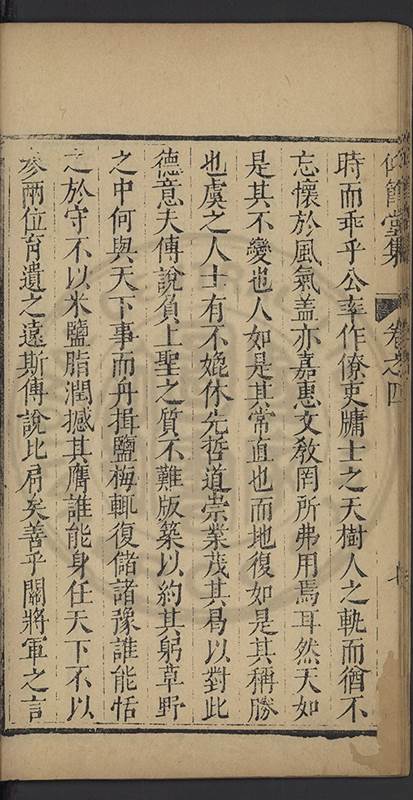 仰節堂集
卷之四
七
時而乖乎公率作僚吏牗士之天樹人之軌而猶不
忘懷於風氣盖亦嘉惠文敎罔所弗用焉耳然天如
是其不變也人如是其常直也而地復如是其稱勝
也虞之人士有不媲休先哲道崇業茂其曷以對此
德意夫傅說負上聖之質不難版築以約其躬草野
之中何與天下事而舟揖鹽梅輒復儲諸豫誰能恬
之於守不以米鹽脂潤撼其膺誰能身任天下不以
參兩位育遺之遠斯傅說比肩矣善乎關將軍之言